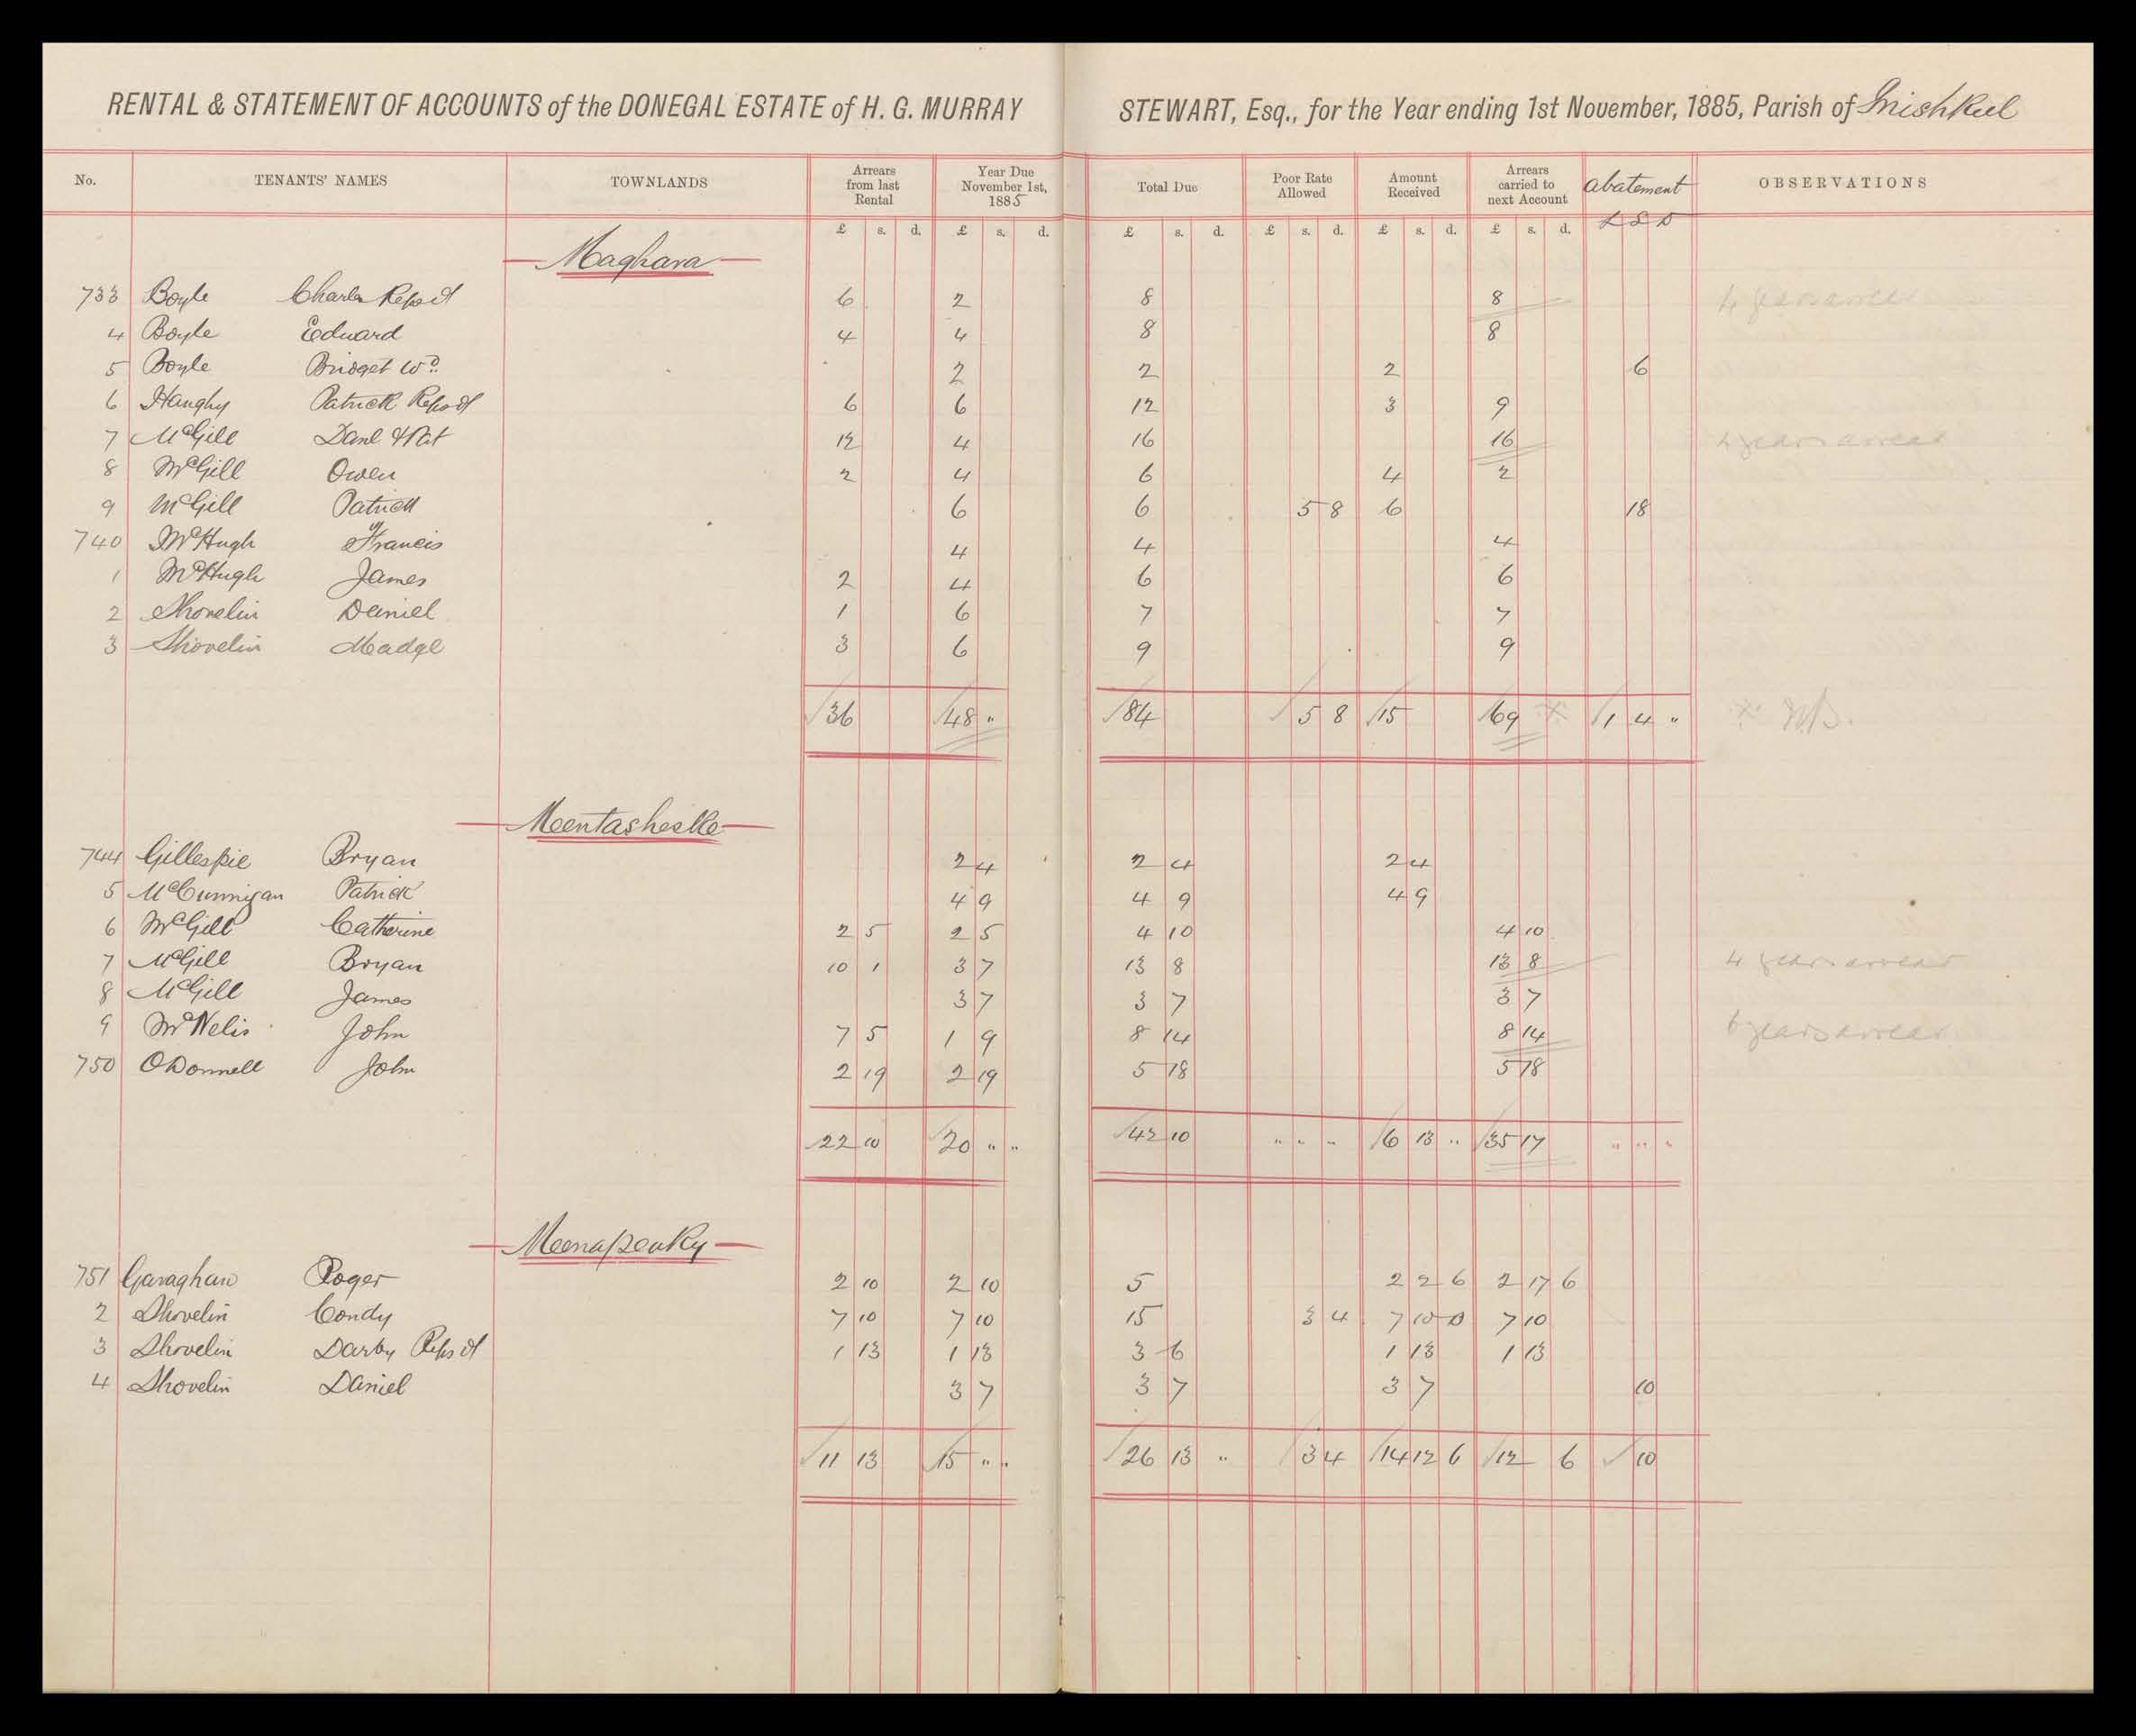 RENTAL & STATEMENT OF ACCOUNTS of the DONEGAL ESTATE of H. G. MURRAY STEWART, Esq., for the Year ending 1st November, 1885, Parish of Inishkeel
No. TENANTS' NAMES TOWNLANDS Arrears from last Rental Year Due November 1st, 1885 Total Due Poor Rate Allowed Amount Received Arrears carried to next Account Abatement OBSERVATIONS
£ s. d. £ s. d. £ s. d. £ s. d. £ s. d. £ s. d. £ S D
Maghara
733 Boyle Charles Repst 6 2 8 8 4 years arrear
4 Boyle Edward 4 4 8 8
5 Boyle Bridget Wd. 2 2 2 6
6 Haughy Patrick Repst 6 6 12 3 9
7 McGill Danl & Pat 12 4 16 16 4 years arrear
8 McGill Owen 2 4 6 4 2
9 McGill Patrick 6 6 5 8 6 18
740 McHugh Francis 4 4 4
1 McHugh James 2 4 6 6
2 Shovelin Daniel 1 6 7 7
3 Shovelin Madge 3 6 9 9
36 48 " 84 5 8 15 69 × 1 4 " × NB.
Meentasheske
744 Gillespie Bryan 2 4 2 4 2 4
5 McCunnigan Patrick 4 9 4 9 4 9
6 McGill Catherine 2 5 2 5 4 10 4 10
7 McGill Bryan 10 1 3 7 13 8 13 8 4 years arrear
8 McGill James 3 7 3 7 3 7
9 McNelis John 7 5 1 9 8 14 8 14 6 years arrear
750 ODonnell John 2 19 2 19 5 18 5 18
22 10 20 " " 42 10 " " " 6 13 " 35 17 " " "
Meenapeaky
751 Gavaghan Roger 2 10 2 10 5 2 2 6 2 17 6
2 Shovelin Condy 7 10 7 10 15 3 4 7 10 0 7 10
3 Shovelin Darby Repst 1 13 1 13 3 6 1 13 1 13
4 Shovelin Daniel 3 7 3 7 3 7 10
11 13 15 " " 26 13 " 3 4 14 12 6 12 6 10